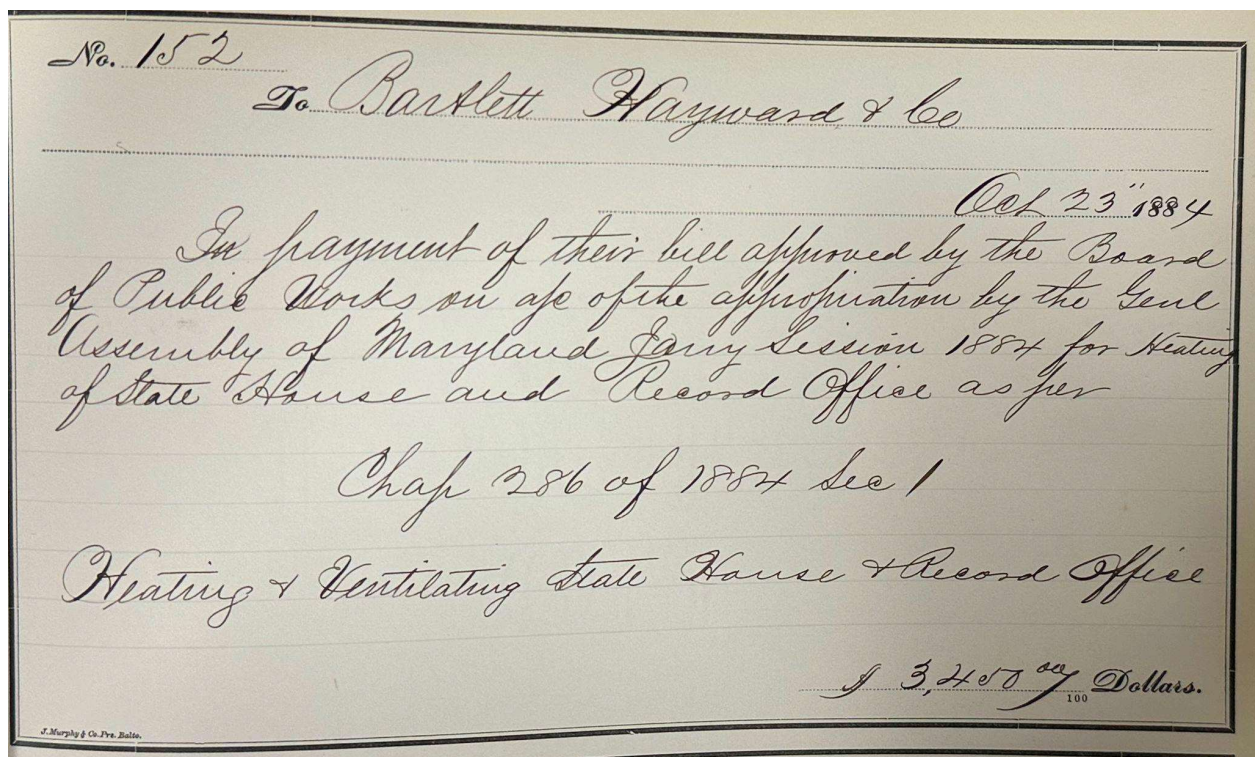 No. 152
To Bartlett Hayward & Co
Oct 23" 1884
In payment of their bill approved by the Board
of Public Works on a/c of the appropriation by the Genl
Assembly of Maryland Jany Session 1884 for Heating
of State House and Record Office as per
Chap 286 of 1884 Sec 1
Heating & Ventilating State House & Record Office
$ 3,450 00/100 Dollars.
J. Murphy & Co. Prs. Balto.